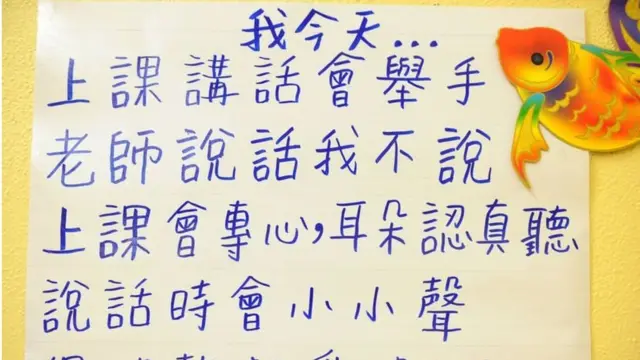 我今天...
上課講話會舉手
老師說話我不說
上課會專心,耳朵認真聽
說話時會小小聲